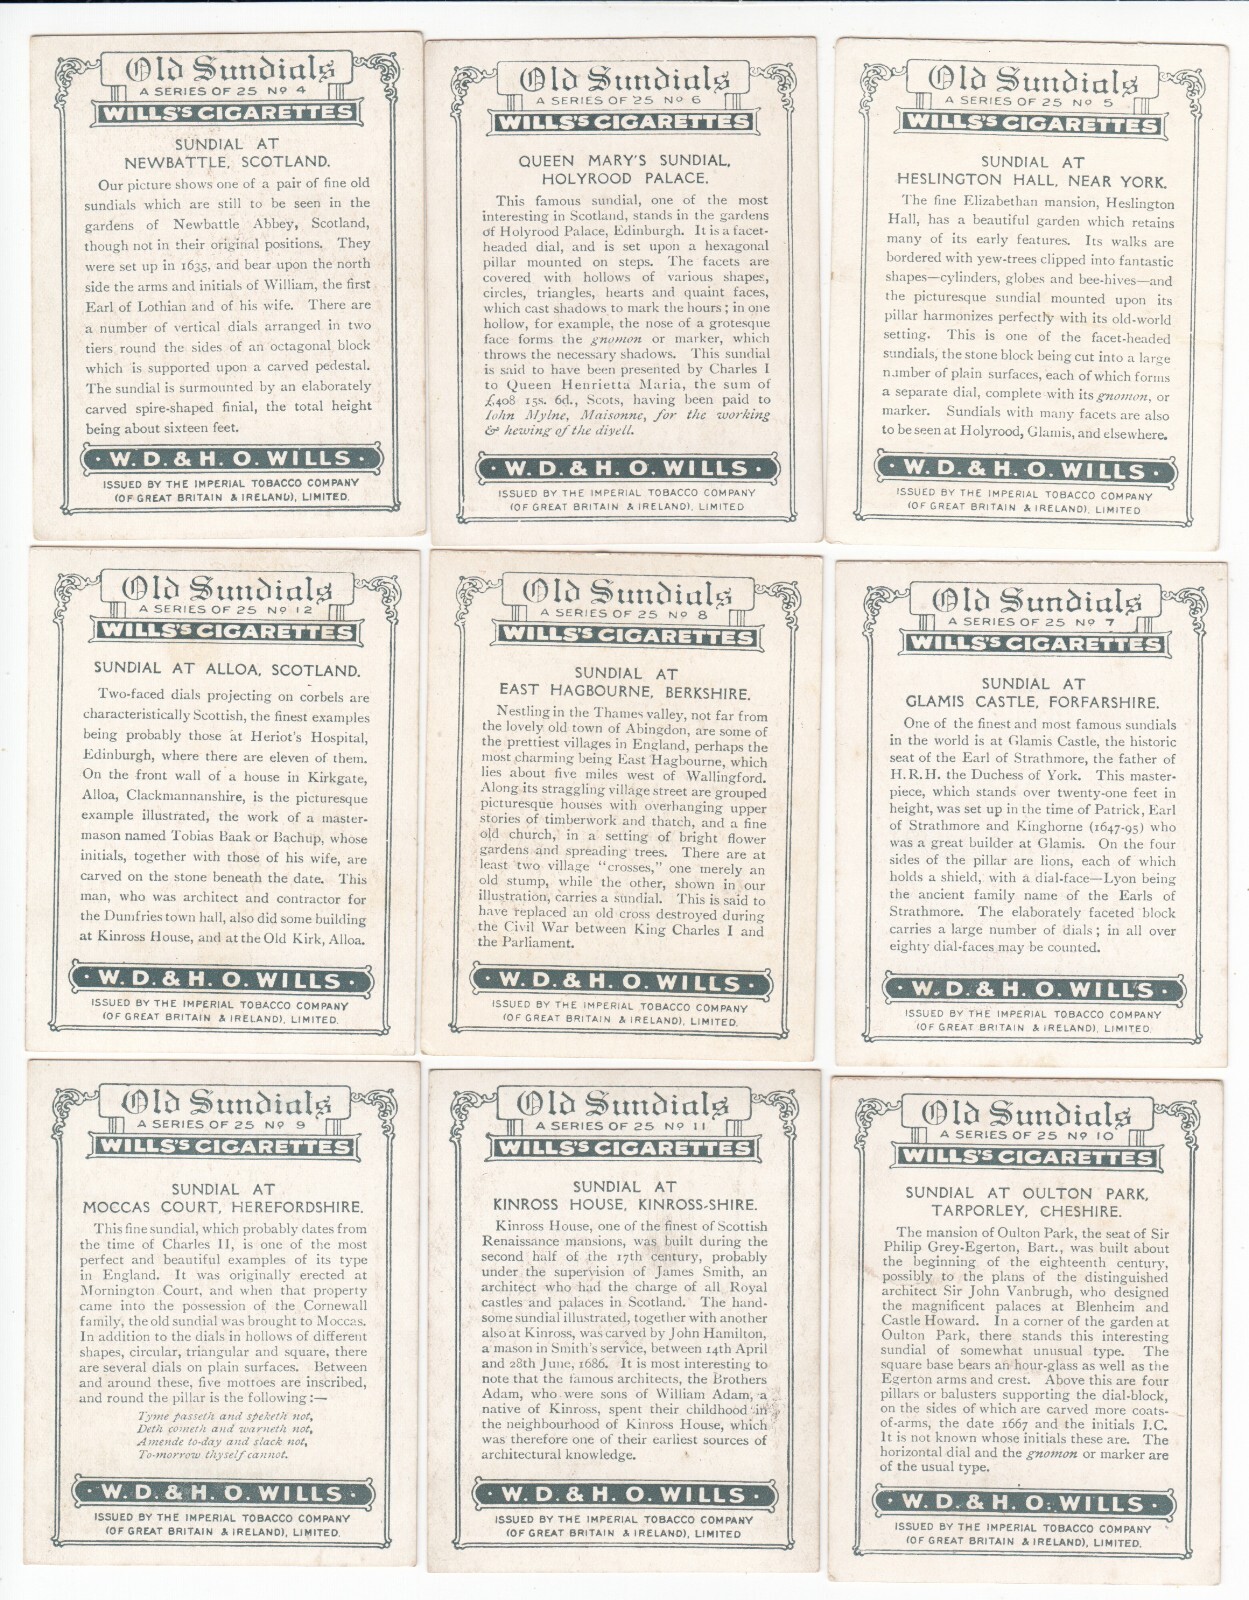 Old Sundials
A SERIES OF 25 Nº 4
WILLS'S CIGARETTES
SUNDIAL AT
NEWBATTLE, SCOTLAND.
Our picture shows one of a pair of fine old
sundials which are still to be seen in the
gardens of Newbattle Abbey, Scotland,
though not in their original positions. They
were set up in 1635, and bear upon the north
side the arms and initials of William, the first
Earl of Lothian and of his wife. There are
a number of vertical dials arranged in two
tiers round the sides of an octagonal block
which is supported upon a carved pedestal.
The sundial is surmounted by an elaborately
carved spire-shaped finial, the total height
being about sixteen feet.
· W. D. & H. O. WILLS ·
ISSUED BY THE IMPERIAL TOBACCO COMPANY
(OF GREAT BRITAIN & IRELAND), LIMITED.
Old Sundials
A SERIES OF 25 Nº 6
WILLS'S CIGARETTES
QUEEN MARY'S SUNDIAL,
HOLYROOD PALACE.
This famous sundial, one of the most
interesting in Scotland, stands in the gardens
of Holyrood Palace, Edinburgh. It is a facet-
headed dial, and is set upon a hexagonal
pillar mounted on steps. The facets are
covered with hollows of various shapes,
circles, triangles, hearts and quaint faces,
which cast shadows to mark the hours; in one
hollow, for example, the nose of a grotesque
face forms the gnomon or marker, which
throws the necessary shadows. This sundial
is said to have been presented by Charles I
to Queen Henrietta Maria, the sum of
£408 15s. 6d., Scots, having been paid to
John Mylne, Maisonne, for the working
& hewing of the diyell.
· W. D. & H. O. WILLS ·
ISSUED BY THE IMPERIAL TOBACCO COMPANY
(OF GREAT BRITAIN & IRELAND), LIMITED
Old Sundials
A SERIES OF 25 Nº 5
WILLS'S CIGARETTES
SUNDIAL AT
HESLINGTON HALL, NEAR YORK.
The fine Elizabethan mansion, Heslington
Hall, has a beautiful garden which retains
many of its early features. Its walks are
bordered with yew-trees clipped into fantastic
shapes—cylinders, globes and bee-hives—and
the picturesque sundial mounted upon its
pillar harmonizes perfectly with its old-world
setting. This is one of the facet-headed
sundials, the stone block being cut into a large
number of plain surfaces, each of which forms
a separate dial, complete with its gnomon, or
marker. Sundials with many facets are also
to be seen at Holyrood, Glamis, and elsewhere.
· W. D. & H. O. WILLS ·
ISSUED BY THE IMPERIAL TOBACCO COMPANY
(OF GREAT BRITAIN & IRELAND), LIMITED
Old Sundials
A SERIES OF 25 Nº 12
WILLS'S CIGARETTES
SUNDIAL AT ALLOA, SCOTLAND.
Two-faced dials projecting on corbels are
characteristically Scottish, the finest examples
being probably those at Heriot's Hospital,
Edinburgh, where there are eleven of them.
On the front wall of a house in Kirkgate,
Alloa, Clackmannanshire, is the picturesque
example illustrated, the work of a master-
mason named Tobias Baak or Bachup, whose
initials, together with those of his wife, are
carved on the stone beneath the date. This
man, who was architect and contractor for
the Dumfries town hall, also did some building
at Kinross House, and at the Old Kirk, Alloa.
· W. D. & H. O. WILLS ·
ISSUED BY THE IMPERIAL TOBACCO COMPANY
(OF GREAT BRITAIN & IRELAND), LIMITED.
Old Sundials
A SERIES OF 25 Nº 8
WILLS'S CIGARETTES
SUNDIAL AT
EAST HAGBOURNE, BERKSHIRE.
Nestling in the Thames valley, not far from
the lovely old town of Abingdon, are some of
the prettiest villages in England, perhaps the
most charming being East Hagbourne, which
lies about five miles west of Wallingford.
Along its straggling village street are grouped
picturesque houses with overhanging upper
stories of timberwork and thatch, and a fine
old church, in a setting of bright flower
gardens and spreading trees. There are at
least two village "crosses," one merely an
old stump, while the other, shown in our
illustration, carries a sundial. This is said to
have replaced an old cross destroyed during
the Civil War between King Charles I and
the Parliament.
· W. D. & H. O. WILLS ·
ISSUED BY THE IMPERIAL TOBACCO COMPANY
(OF GREAT BRITAIN & IRELAND), LIMITED.
Old Sundials
A SERIES OF 25 Nº 7
WILLS'S CIGARETTES
SUNDIAL AT
GLAMIS CASTLE, FORFARSHIRE.
One of the finest and most famous sundials
in the world is at Glamis Castle, the historic
seat of the Earl of Strathmore, the father of
H.R.H. the Duchess of York. This master-
piece, which stands over twenty-one feet in
height, was set up in the time of Patrick, Earl
of Strathmore and Kinghorne (1647-95) who
was a great builder at Glamis. On the four
sides of the pillar are lions, each of which
holds a shield, with a dial-face—Lyon being
the ancient family name of the Earls of
Strathmore. The elaborately faceted block
carries a large number of dials; in all over
eighty dial-faces may be counted.
· W. D. & H. O. WILLS ·
ISSUED BY THE IMPERIAL TOBACCO COMPANY
(OF GREAT BRITAIN & IRELAND), LIMITED.
Old Sundials
A SERIES OF 25 Nº 9
WILLS'S CIGARETTES
SUNDIAL AT
MOCCAS COURT, HEREFORDSHIRE.
This fine sundial, which probably dates from
the time of Charles II, is one of the most
perfect and beautiful examples of its type
in England. It was originally erected at
Mornington Court, and when that property
came into the possession of the Cornewall
family, the old sundial was brought to Moccas.
In addition to the dials in hollows of different
shapes, circular, triangular and square, there
are several dials on plain surfaces. Between
and around these, five mottoes are inscribed,
and round the pillar is the following:—
Tyme passeth and speketh not,
Deth cometh and warneth not,
Amende to-day and slack not,
To-morrow thyself cannot.
· W. D. & H. O. WILLS ·
ISSUED BY THE IMPERIAL TOBACCO COMPANY
(OF GREAT BRITAIN & IRELAND), LIMITED.
Old Sundials
A SERIES OF 25 Nº 11
WILLS'S CIGARETTES
SUNDIAL AT
KINROSS HOUSE, KINROSS-SHIRE.
Kinross House, one of the finest of Scottish
Renaissance mansions, was built during the
second half of the 17th century, probably
under the supervision of James Smith, an
architect who had the charge of all Royal
castles and palaces in Scotland. The hand-
some sundial illustrated, together with another
also at Kinross, was carved by John Hamilton,
a mason in Smith's service, between 14th April
and 28th June, 1686. It is most interesting to
note that the famous architects, the Brothers
Adam, who were sons of William Adam, a
native of Kinross, spent their childhood in
the neighbourhood of Kinross House, which
was therefore one of their earliest sources of
architectural knowledge.
· W. D. & H. O. WILLS ·
ISSUED BY THE IMPERIAL TOBACCO COMPANY
(OF GREAT BRITAIN & IRELAND), LIMITED
Old Sundials
A SERIES OF 25 Nº 10
WILLS'S CIGARETTES
SUNDIAL AT OULTON PARK,
TARPORLEY, CHESHIRE.
The mansion of Oulton Park, the seat of Sir
Philip Grey-Egerton, Bart., was built about
the beginning of the eighteenth century,
possibly to the plans of the distinguished
architect Sir John Vanbrugh, who designed
the magnificent palaces at Blenheim and
Castle Howard. In a corner of the garden at
Oulton Park, there stands this interesting
sundial of somewhat unusual type. The
square base bears an hour-glass as well as the
Egerton arms and crest. Above this are four
pillars or balusters supporting the dial-block,
on the sides of which are carved more coats-
of-arms, the date 1667 and the initials I.C.
It is not known whose initials these are. The
horizontal dial and the gnomon or marker are
of the usual type.
· W. D. & H. O. WILLS ·
ISSUED BY THE IMPERIAL TOBACCO COMPANY
(OF GREAT BRITAIN & IRELAND), LIMITED.